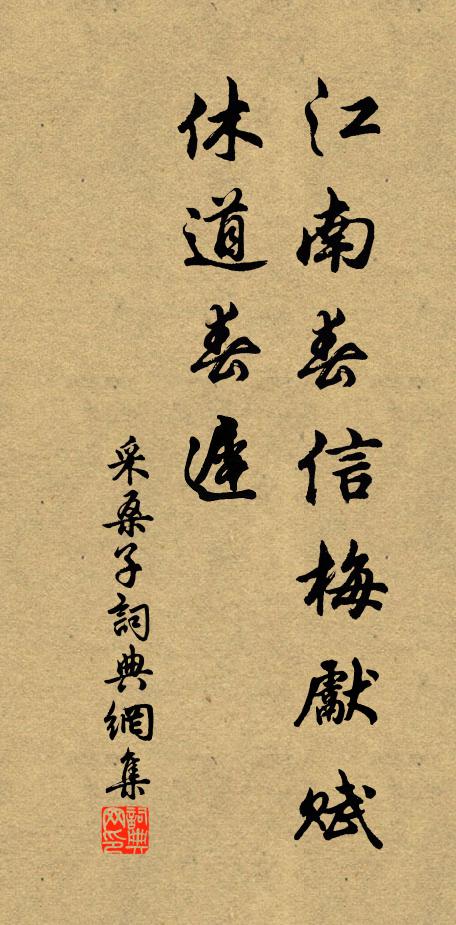 江南春信梅獻賦
休道春遲
采桑子詞典網集
詞典网印